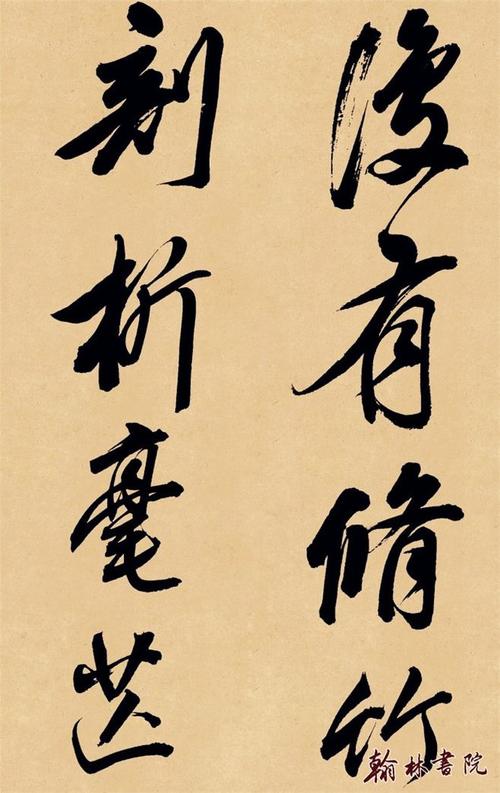 復有脩竹
刻析毫芒
翰林書院